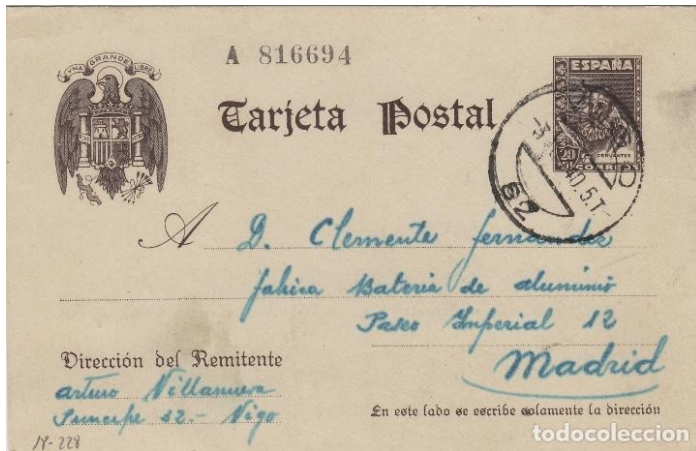 UNA GRANDE LIBRE
A 816694
ESPAÑA
Tarjeta Postal
20
CERVANTES
CORREOS
40.5.T
62
A D. Clemente fernandez
fabica Bateria de aluminio
Paseo Imperial 12
Madrid
Dirección del Remitente
Arturo Villanueva
Principe 42.- Vigo
En este lado se escribe solamente la dirección
18-228
todocoleccion.net